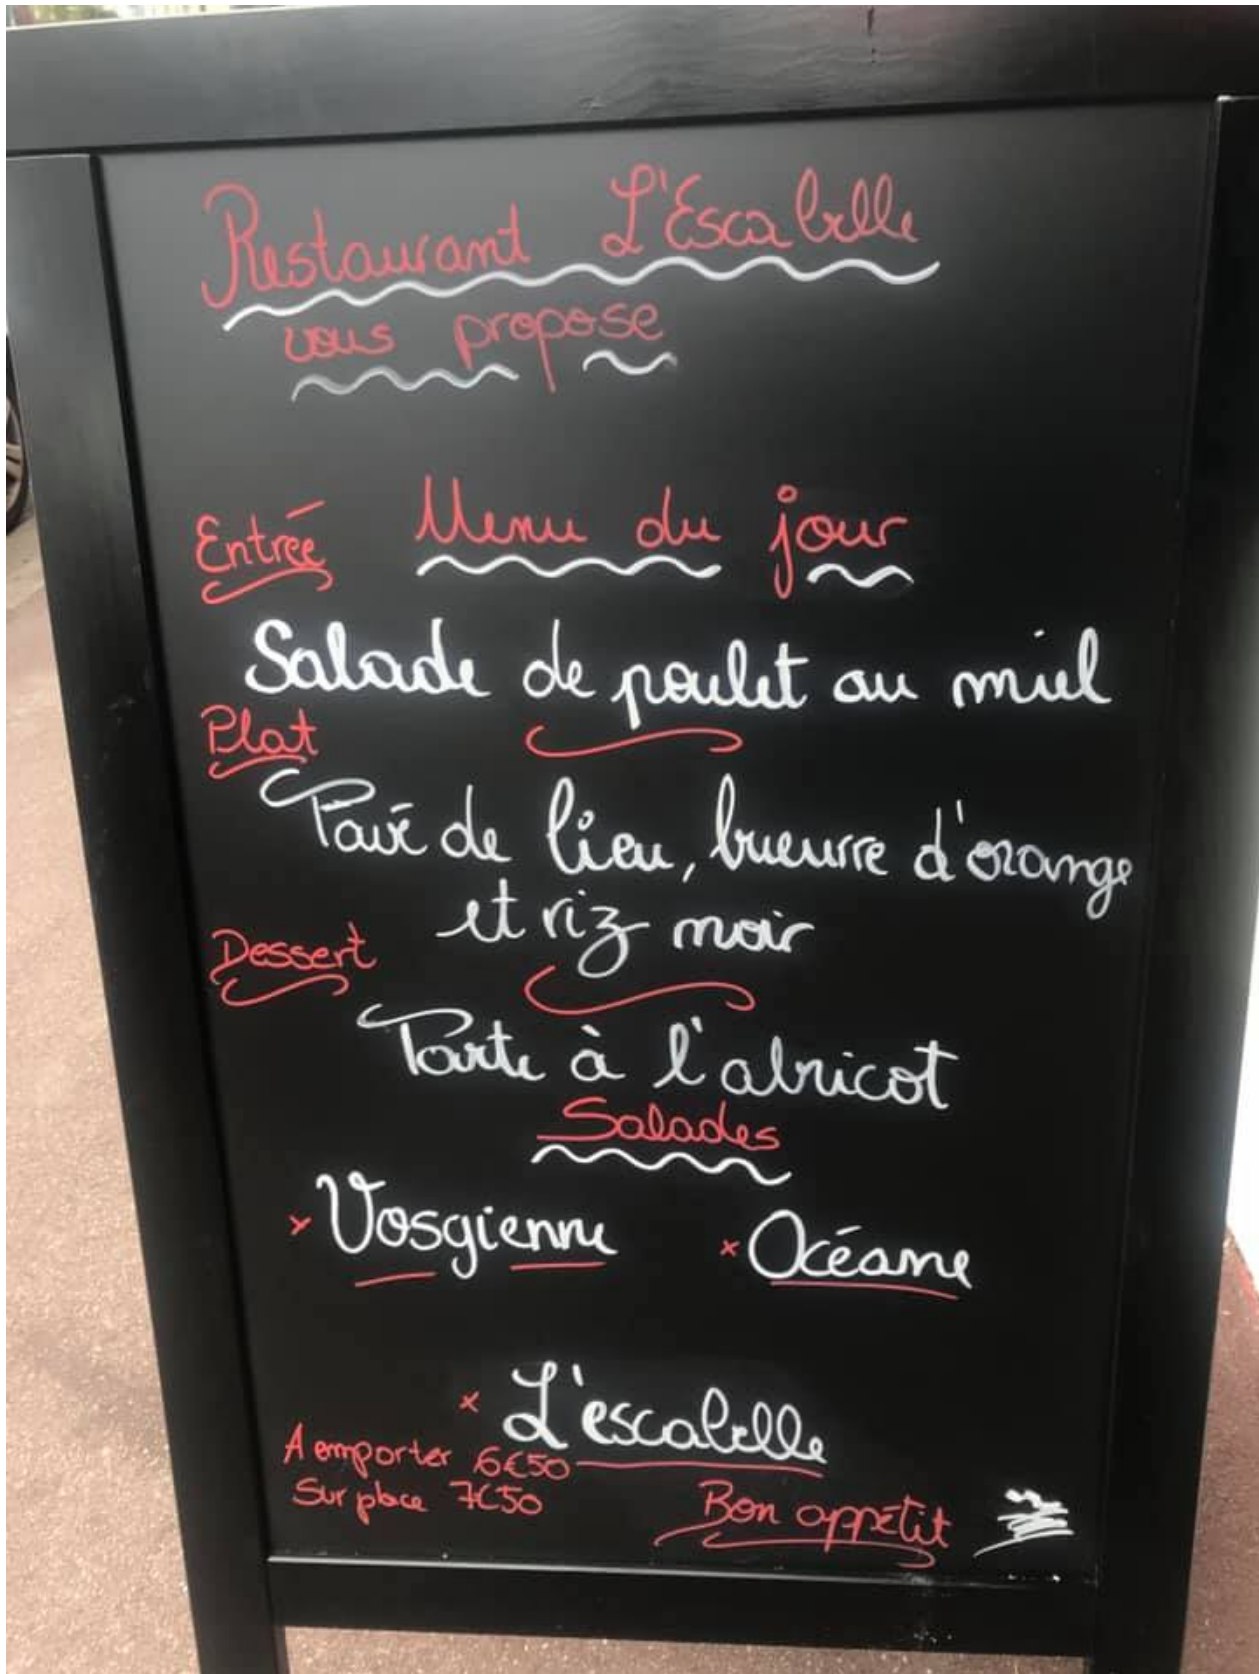 Restaurant L'Escabelle
vous propose
Entrée Menu du jour
Salade de poulet au miel
Plat
Pavé de lieu, bueurre d'orange
et riz noir
Dessert
Tarte à l'abricot
Salades
x Vosgienne x Océane
x L'escabelle
A emporter 6€50
Sur place 7€50
Bon appétit